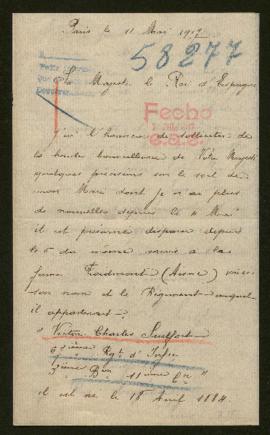 Paris le 11 Mai 1917
58277
Sa Majesté le Roi d'Espagne
Fecho
J'ai l'honneur de solliciter de
la haute bienveillance de Votre Majesté
quelques précisions sur le sort de
mon Mari dont je n'ai plus
de nouvelles depuis le 4 Mai
il est présumé disparu depuis
le 5 du même mois à la
ferme Froidmont (Aisne) voici
son nom et le Régiment auquel
il appartenait
Victor Charles
6ième Rgt d'Infie
3ième Bon 11ième Cie
il est né le 18 Avril 1884